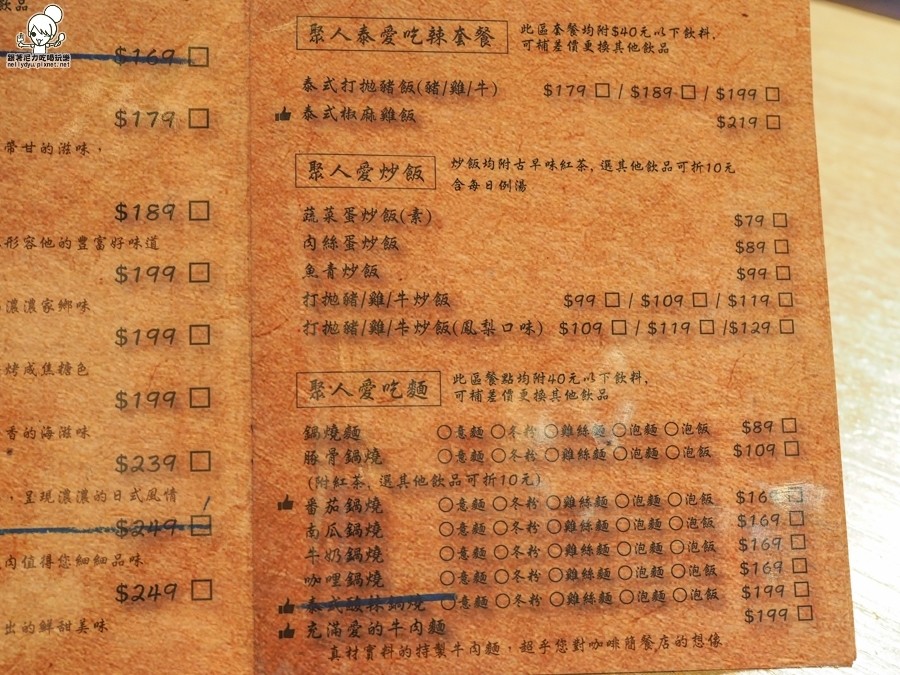 飲品
跟著尼力吃喝玩樂
nellydyu.pixnet.net
$169
$179
帶甘的滋味，
$189
形容他的豐富好味道
$199
濃濃家鄉味
$199
烤成焦糖色
$199
香的海滋味
$239
，呈現濃濃的日式風情
$249
肉值得您細細品味
$249
出的鮮甜美味
聚人泰愛吃辣套餐 此區套餐均附$40元以下飲料，
可補差價更換其他飲品
泰式打拋豬飯(豬/雞/牛) $179 / $189 / $199
泰式椒麻雞飯 $219
聚人愛炒飯 炒飯均附古早味紅茶，選其他飲品可折10元
含每日例湯
蔬菜蛋炒飯(素) $79
肉絲蛋炒飯 $89
魚青炒飯 $99
打拋豬/雞/牛炒飯 $99 / $109 / $119
打拋豬/雞/牛炒飯(鳳梨口味) $109 / $119 / $129
聚人愛吃麵 此區餐點均附40元以下飲料，
可補差價更換其他飲品
鍋燒麵 ○意麵 ○冬粉 ○雞絲麵 ○泡麵 ○泡飯 $89
豚骨鍋燒 ○意麵 ○冬粉 ○雞絲麵 ○泡麵 ○泡飯 $109
(附紅茶，選其他飲品可折10元)
番茄鍋燒 ○意麵 ○冬粉 ○雞絲麵 ○泡麵 ○泡飯
南瓜鍋燒 ○意麵 ○冬粉 ○雞絲麵 ○泡麵 ○泡飯 $169
牛奶鍋燒 ○意麵 ○冬粉 ○雞絲麵 ○泡麵 ○泡飯 $169
咖哩鍋燒 ○意麵 ○冬粉 ○雞絲麵 ○泡麵 ○泡飯 $169
泰式酸辣鍋燒 ○意麵 ○冬粉 ○雞絲麵 ○泡麵 ○泡飯 $199
充滿愛的牛肉麵 $199
真材實料的特製牛肉麵，超乎您對咖啡簡餐店的想像